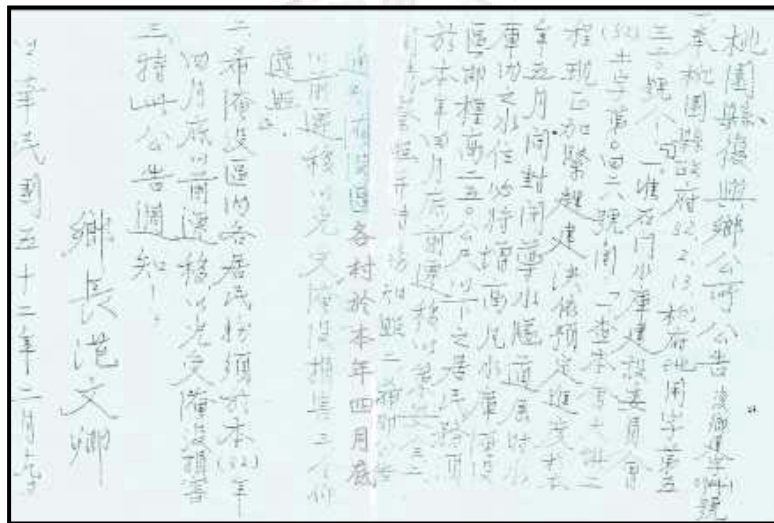 桃園縣復興鄉公所公告 復鄉建字第 號
一、奉桃園縣政府52.2.13.桃府地用字第五
三三〇號令 「准石門水庫建設委員會
(52)土字第〇四六號函 「查本會大壩工
程現已加緊趕建決依預定進度於
年五月間封閉導水隧道屆時水
庫內之水位必將增高凡水庫淹沒
區即標高二五〇公尺以下之居民務須
於本年四月底前遷移以策安全
知照二 希即
通知淹沒區各村於本年四月底
以前遷移以免受淹沒損害三、令仰
遵照」。
二、希淹沒區內各居民務須於本(52)年
四月底以前遷移以免受淹沒損害
三、特此公告週知!。
鄉長范文卿
中華民國五十二年二月 日